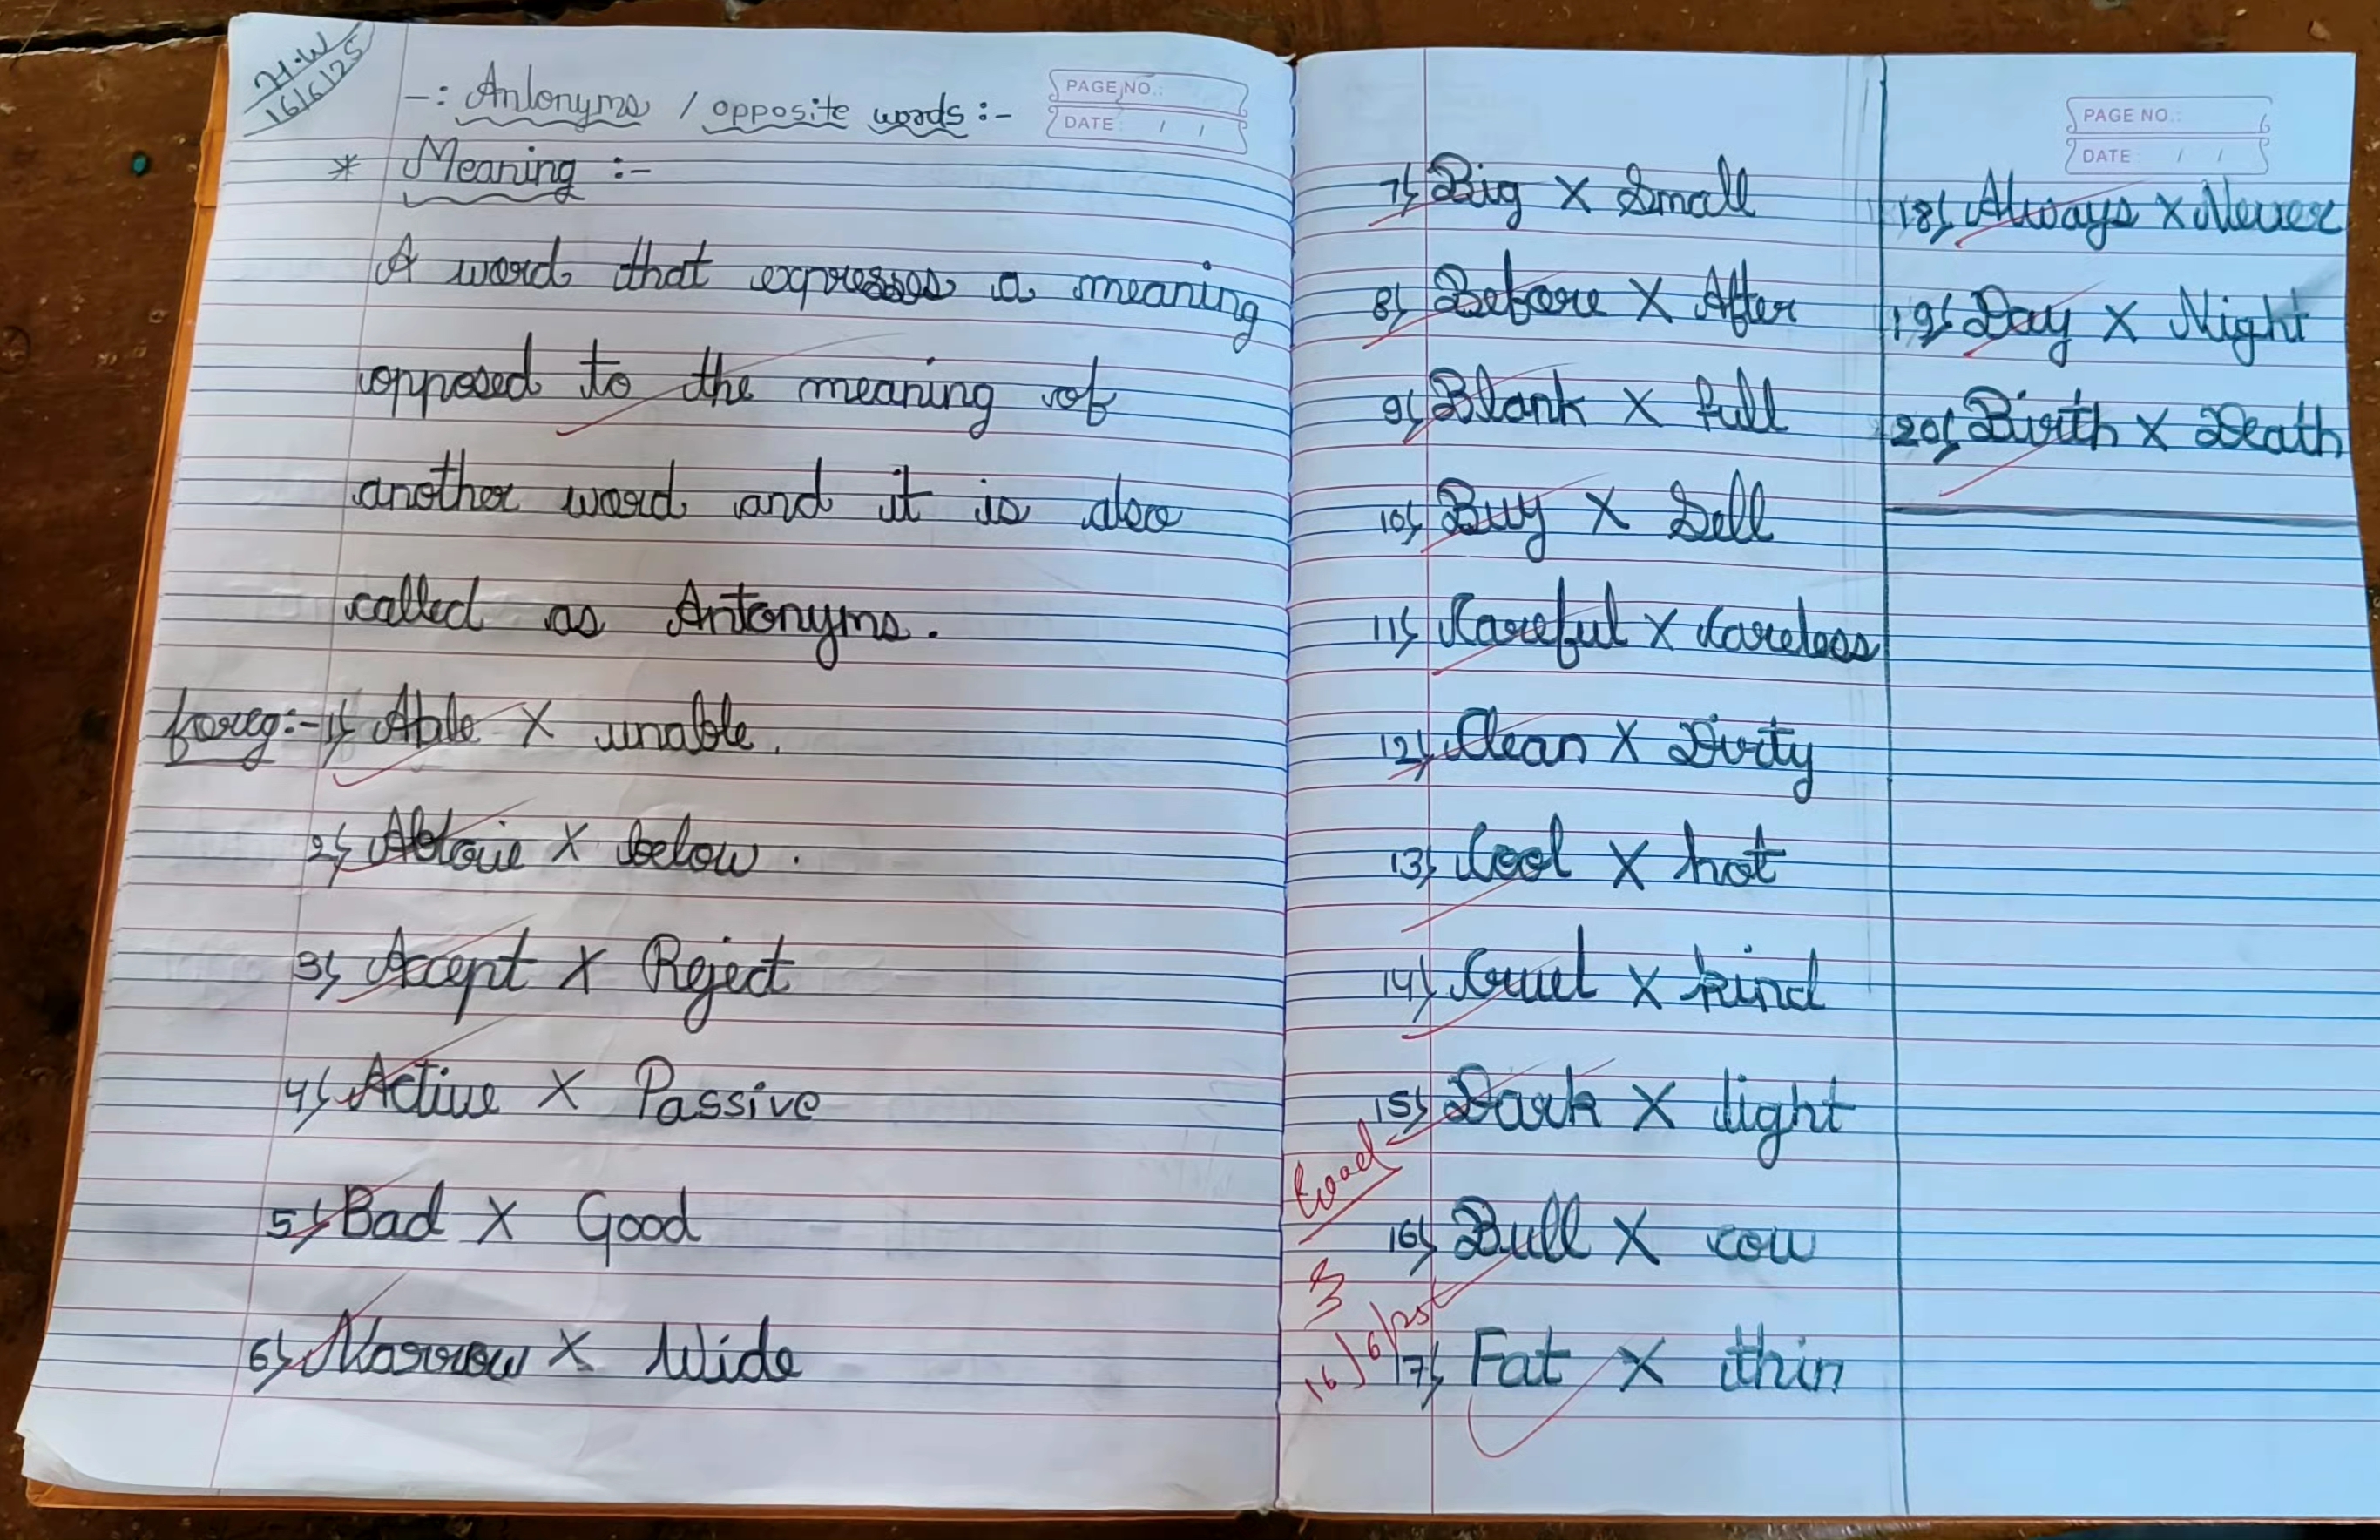 H.W
16/6/25
-: Antonyms / opposite words :-
PAGE NO.:
DATE: / /
* Meaning :-
A word that expresses a meaning
opposed to the meaning of
another word and it is also
called as Antonyms.
foreg:- 1) Able X unable.
2) Above X below.
3) Accept X Reject
4) Active X Passive
5) Bad X Good
6) Narrow X Wide
7) Big X Small
8) Before X After
9) Blank X full
10) Buy X Sell
11) Careful X Careless
12) Clean X Dirty
13) Cool X hot
14) Cruel X kind
15) Dark X light
16) Bull X cow
17) Fat X thin
16/6/25
PAGE NO.:
DATE: / /
18) Always X Never
19) Day X Night
20) Birth X Death